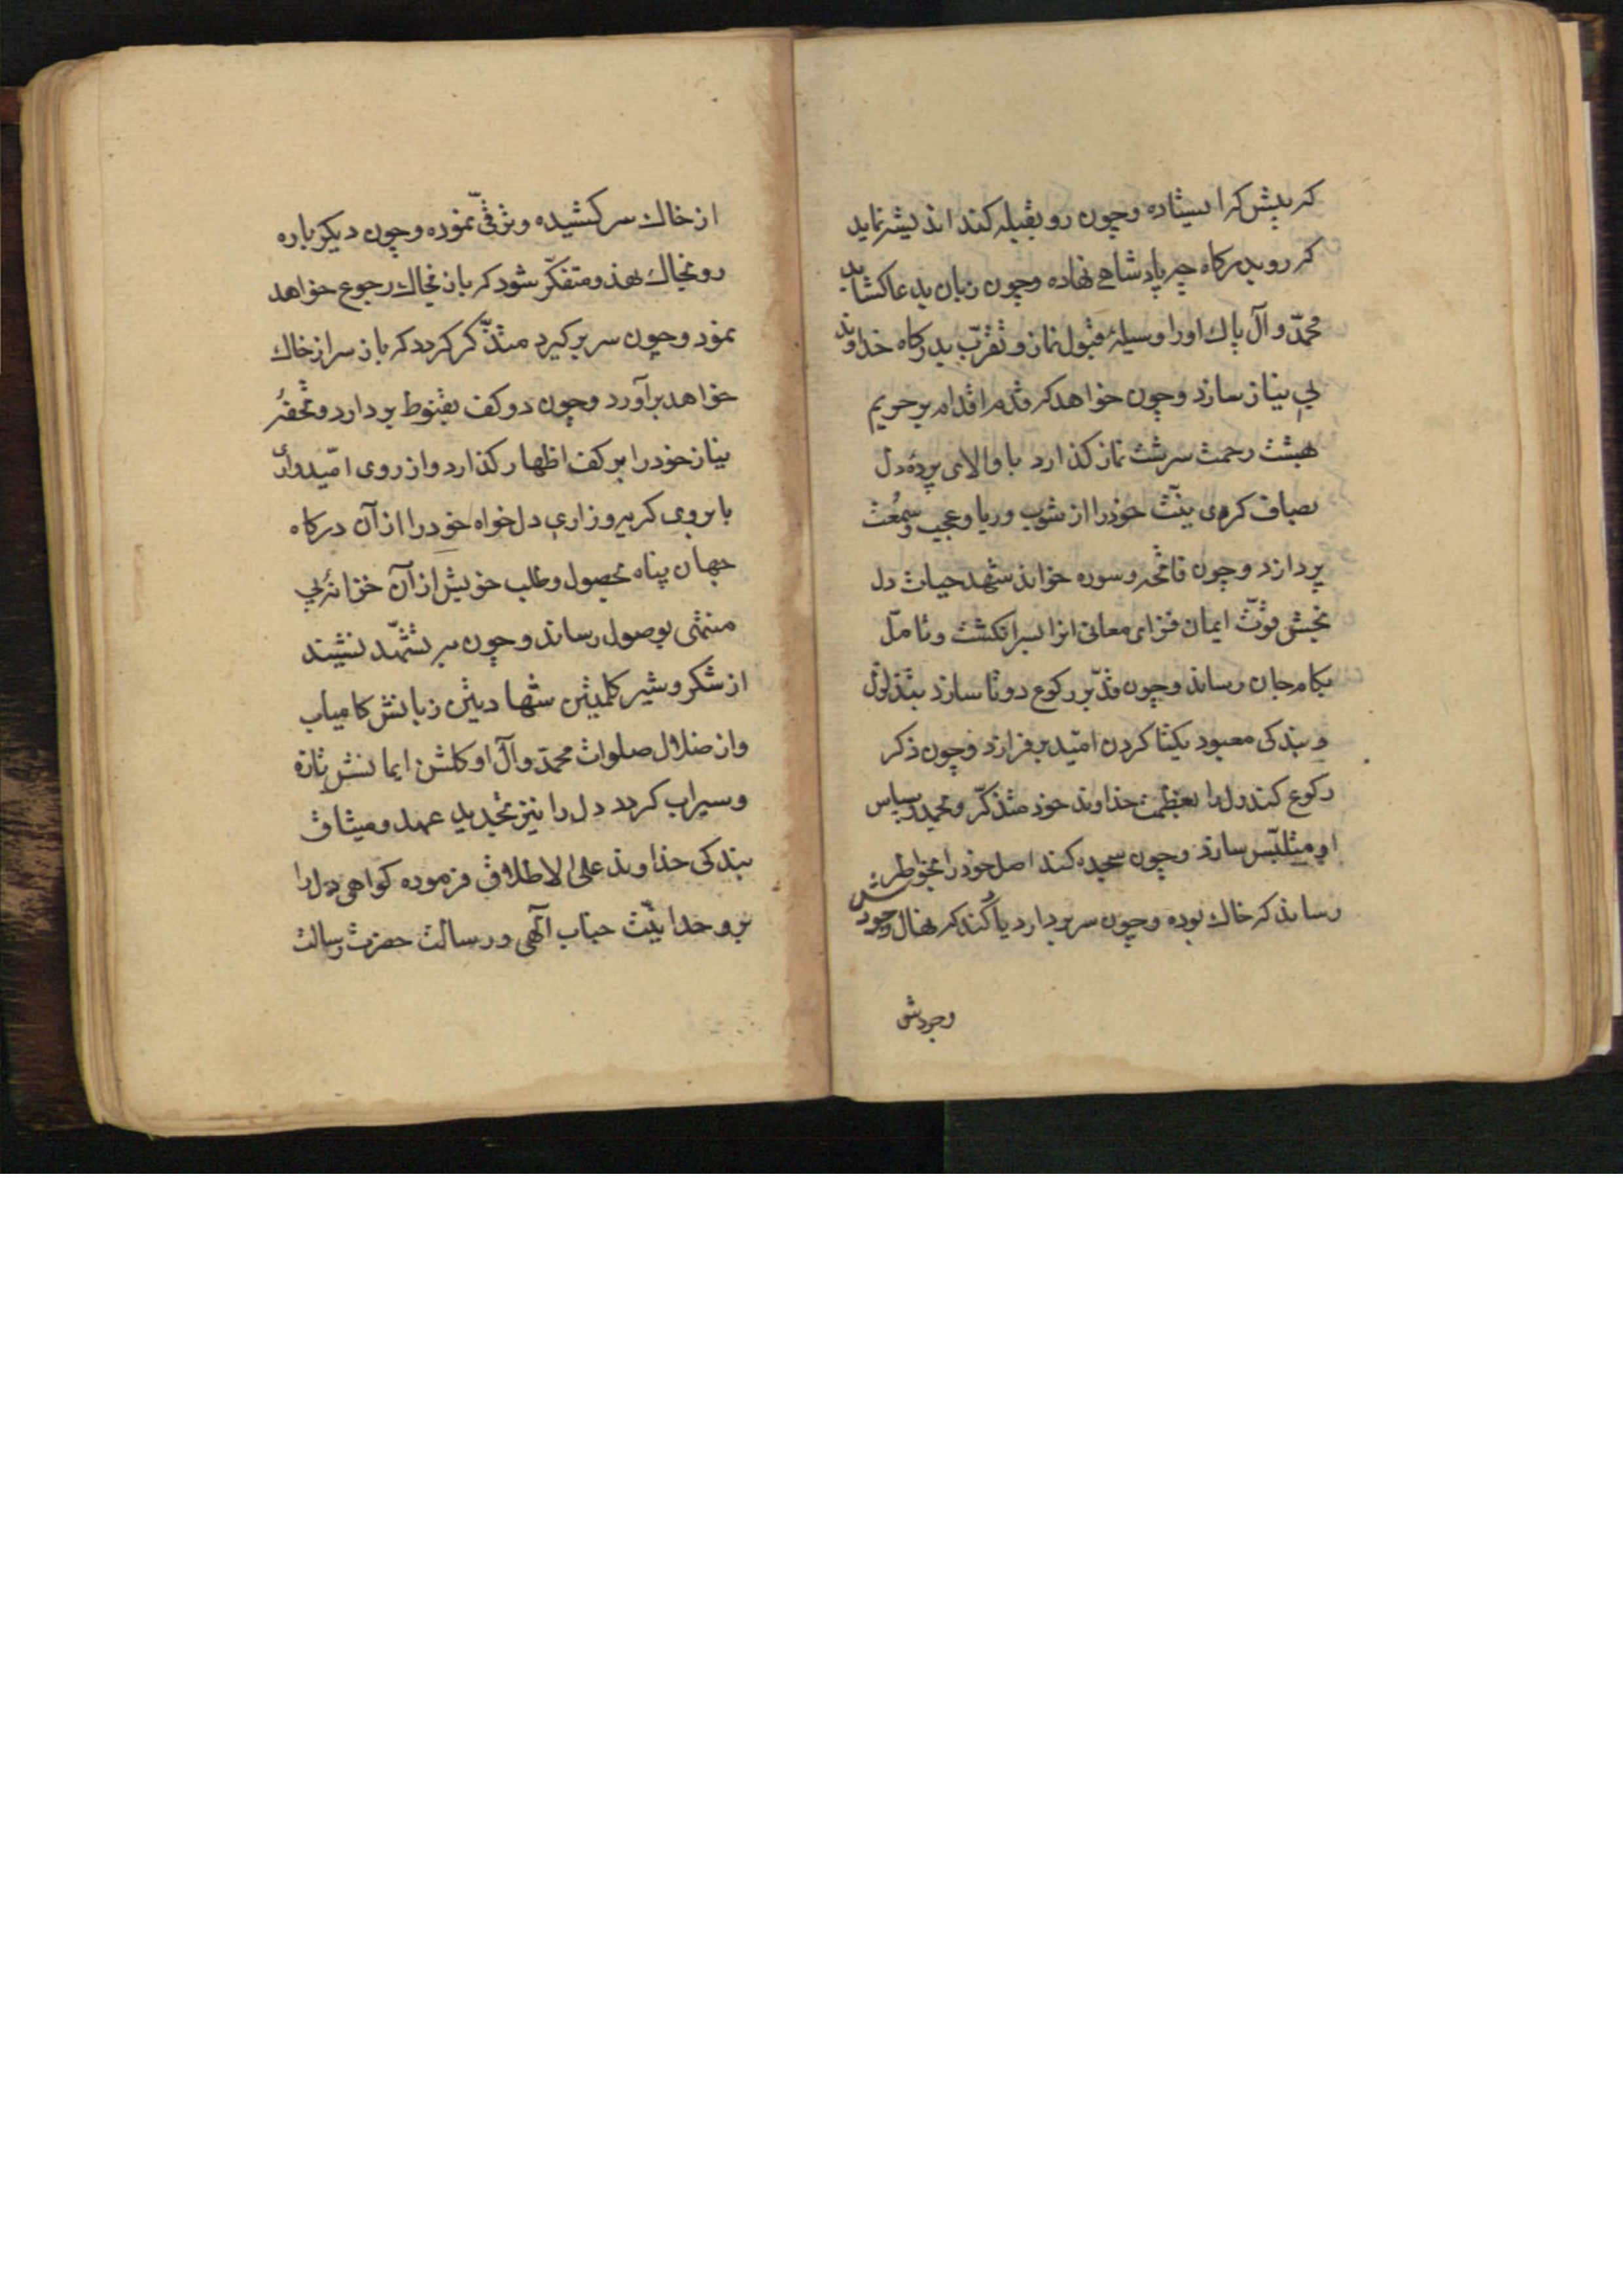 که پیش که ایستاده وچون رو بقبله کند اندیشه نماید
که رو بدرکاه چه پادشاهی نهاده وچون زبان بدعا کشاید
محمّد وآل پاك اورا وسیلهٔ قبول نماز وتقرّب بدرکاه خداوند
بی نیاز سازد وچون خواهد که قدم اقدام بر حریم
بهشت رحمت سرشت نماز کذارد با والای پردهٔ دل
بصاف کردن نیّت خودرا از شوب وریا وعجب وسُمعت
پردازد وچون فاتحه وسوره خواند شهد حیات دل
بخش قوّت ایمان فزای معانی انرا بسرانکشت وتامّل
بکام جان رساند وچون قدّ بر رکوع دوتا سازد
وبندکی معبود یکتا کردن امّید بر فرازد وچون ذکر
رکوع کند دل را بعظمت خداوند خود متذکّر وتحمید وسپاس
او متلبّس سازد وچون سجده کند اصل خودرا بخاطر
رساند که خاك بوده وچون سر بردارد یاد کند که نهال وجودش
وجودش
از خاك سر کشیده وترقّی نموده وچون دیکر باره
رو بخاك نهد ومتفکّر شود که باز بخاك رجوع خواهد
نمود وچون سر برکیرد متذکّر کردد که باز سر از خاك
خواهد برآورد وچون دو کف بقنوط بردارد وتحفهٔ
نیاز خودرا بر کف اظهار کذارد واز روی امّیدواری
بابروی کریه وزاری دل خواه خودرا از آن درکاه
جهان پناه بحصول وطلب خویش از آن خزانهٔ بی
منتهی بوصول رساند وچون سر بتشهّد نشیند
از شکر وشیر کلمتین شهادتین زبانش کامیاب
واز ضلال صلوات محمّد وآل او کلشن ایمانش تازه
وسیراب کردد دل را نیز بتجدید عهد ومیثاق
بندکی خداوند علی الاطلاق فرموده کواهی دل را
بر وحدانیّت جناب الهی ورسالت حضرت رسالت